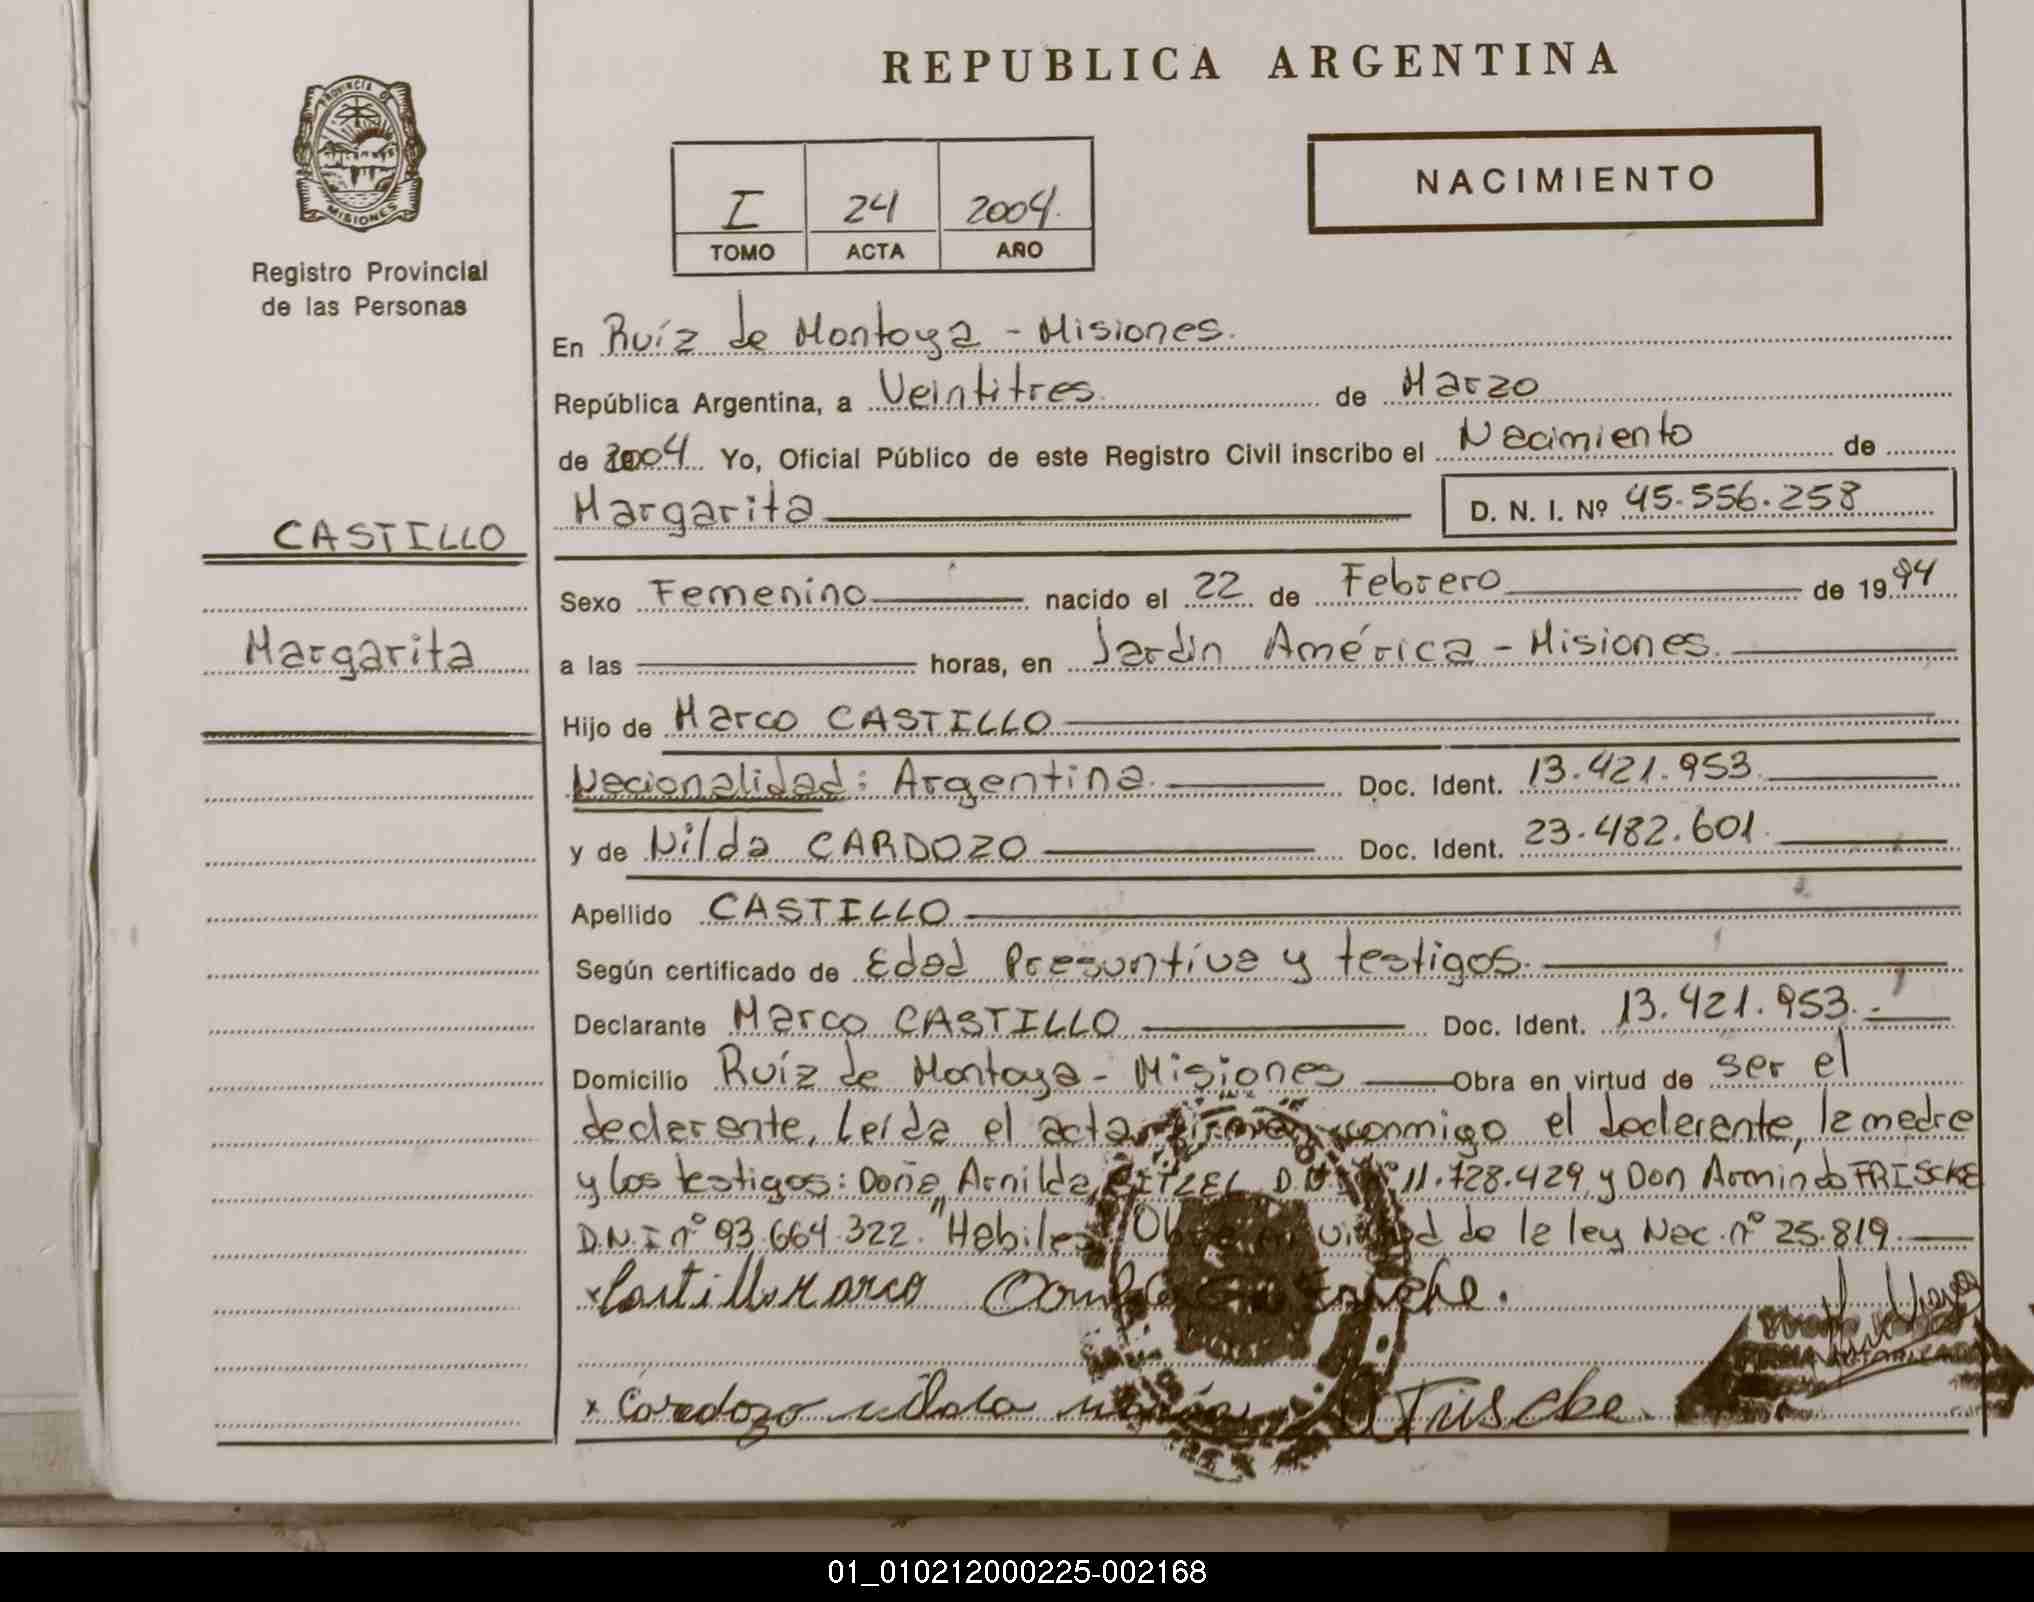 REPUBLICA ARGENTINA
PROVINCIA DE
MISIONES
Registro Provincial
de las Personas
I 24 2004.
TOMO ACTA AÑO
NACIMIENTO
En Ruíz de Montoya - Misiones.
República Argentina, a Veintitres de Marzo
de 2004 Yo, Oficial Público de este Registro Civil inscribo el Nacimiento de
Margarita D. N. I. Nº 45.556.258
CASTILLO
Margarita
Sexo Femenino nacido el 22 de Febrero de 1994
a las horas, en Jardín América - Misiones.
Hijo de Marco CASTILLO
Nacionalidad: Argentina. Doc. Ident. 13.421.953.
y de Nilda CARDOZO Doc. Ident. 23.482.601.
Apellido CASTILLO
Según certificado de Edad Presuntiva y testigos.
Declarante Marco CASTILLO Doc. Ident. 13.421.953.-
Domicilio Ruíz de Montoya - Misiones Obra en virtud de ser el
declarante, Leída el acta conmigo el declarante, la madre
y los testigos: Doña Arnilda 11.728.429 y Don Armindo FRISCKE
D.N.I nº 93.664.322. "Habiles de la ley Nac. nº 25.819.
x Castillo Marco
x Cardozo nilda
01_010212000225-002168